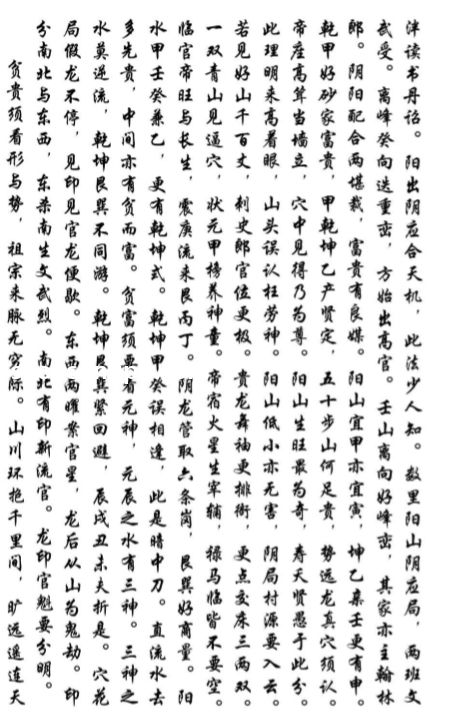 泮读书丹诏。阳出阴应合天机，此法少人知。数里阳山阴应局，两班文
武受。离峰癸向迭重峦，方始出高官。壬山离向好峰峦，其家亦主翰林
郎。阴阳配合两堪裁，富贵有良媒。阳山宜甲亦宜寅，坤乙兼壬更有申。
乾甲好砂家富贵，甲乾坤乙产贤定，五十步山何足贵，势远龙真穴须认。
帝座高耸当墙立，穴中见得乃为尊。阳山生旺最为奇，寿夭贤愚于此分。
此理明来高着眼，山头误认枉劳神。阳山低小亦无害，阴局村源要入云。
若见好山千百丈，刺史郎官位更极。贵龙舞袖更排衙，更点交床三两双。
一双青山见逼穴，状元甲榜养神童。帝宿火星生宰辅，禄马临皆不要空。
临官帝旺与长生，震庚流来艮丙丁。阴龙管取六条岗，艮巽好商量。阳
水甲壬癸兼乙，更有乾坤式。乾坤甲癸误相逢，此是暗中刀。直流水去
多先贵，中间亦有贫而富。贫富须要看元神，元辰之水有三神。三神之
水莫逆流，乾坤艮巽不同游。乾坤艮巽紧回避，辰戌丑未夫折是。穴花
局假龙不停，见印见官龙便歇。东西两曜案官星，龙后从山为鬼劫。印
分南北与东西，东杀南生文武烈。南北有印新流官。龙印官魁要分明。
贫贵须看形与势，祖宗来脉无穷际。山川环抱千里间，旷远遥连天